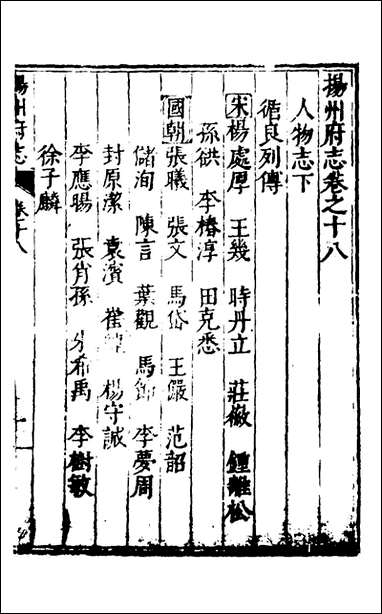 揚州府志卷之十八
人物志下
循良列傳
宋楊處厚 王幾 時丹立 莊徽 鍾離松
孫鉷 李椿淳 田克悉
國朝張曦 張文 馬岱 王儼 范韶
儲洵 陳言 葉觀 馬 李夢周
封原潔 袁濱 崔 楊守誠
李應暘 張肖孫 朱希禹 李樹敏
徐子麟
揚州府志 卷十八